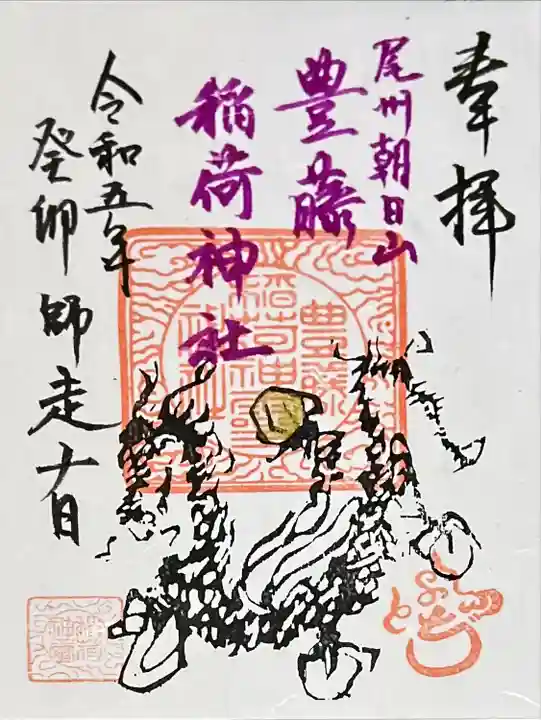 奉拝
尾州朝日山
豊藤
稲荷神社
令和五年
癸卯師走十日
豊藤
稲荷神
社